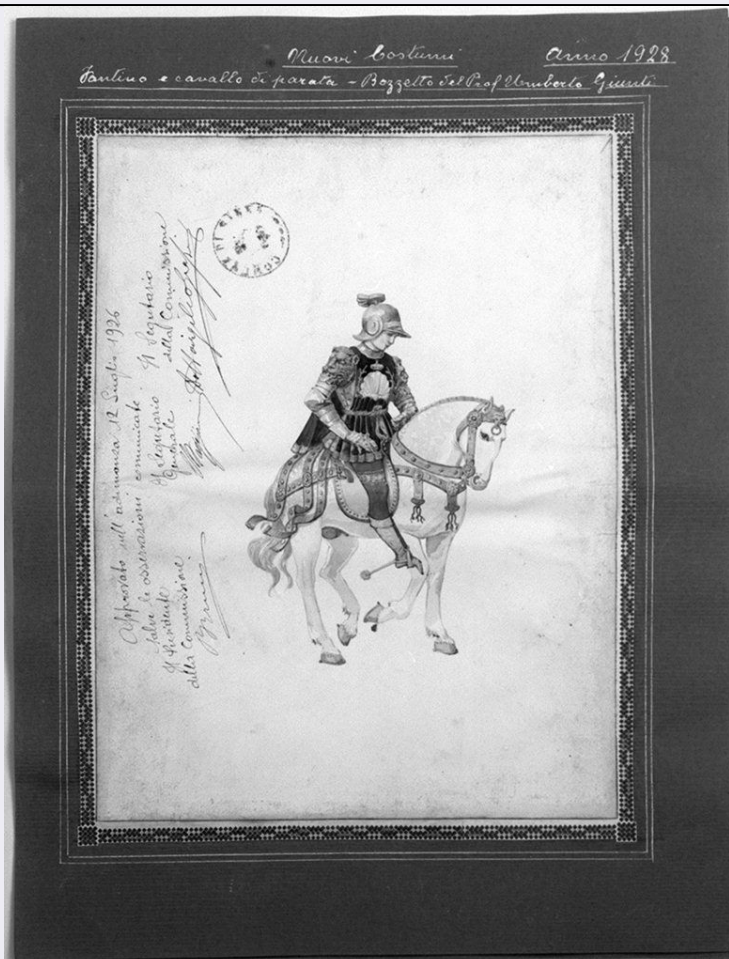 Nuovi Costumi Anno 1928
Fantino e cavallo di parata - Bozzetto del Prof Umberto Giunti
COMUNE DI SIENA
Approvato nell'adunanza 12 Luglio 1926
salve le osservazioni comunicate.
Il Presidente
della Commissione
Il Segretario
Generale
Il Segretario
della Commissione